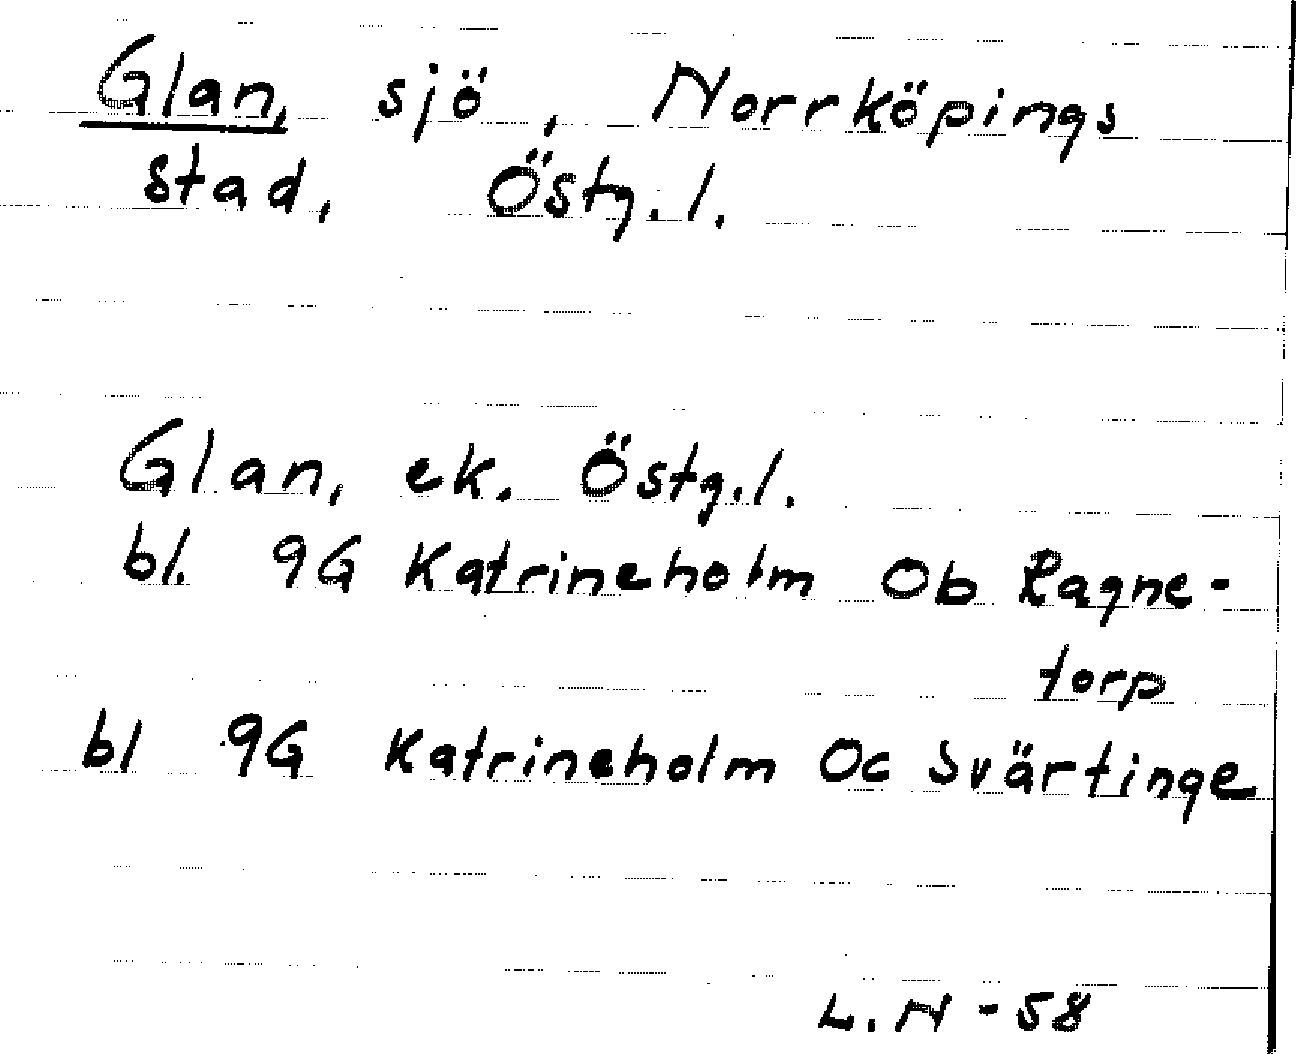 Glan, sjö, Norrköpings
stad, Östg.l.
Glan, ek. Östg.l.
bl. 9G Katrineholm Ob Ragne-
torp
bl 9G Katrineholm Oc Svärtinge
L.N -58